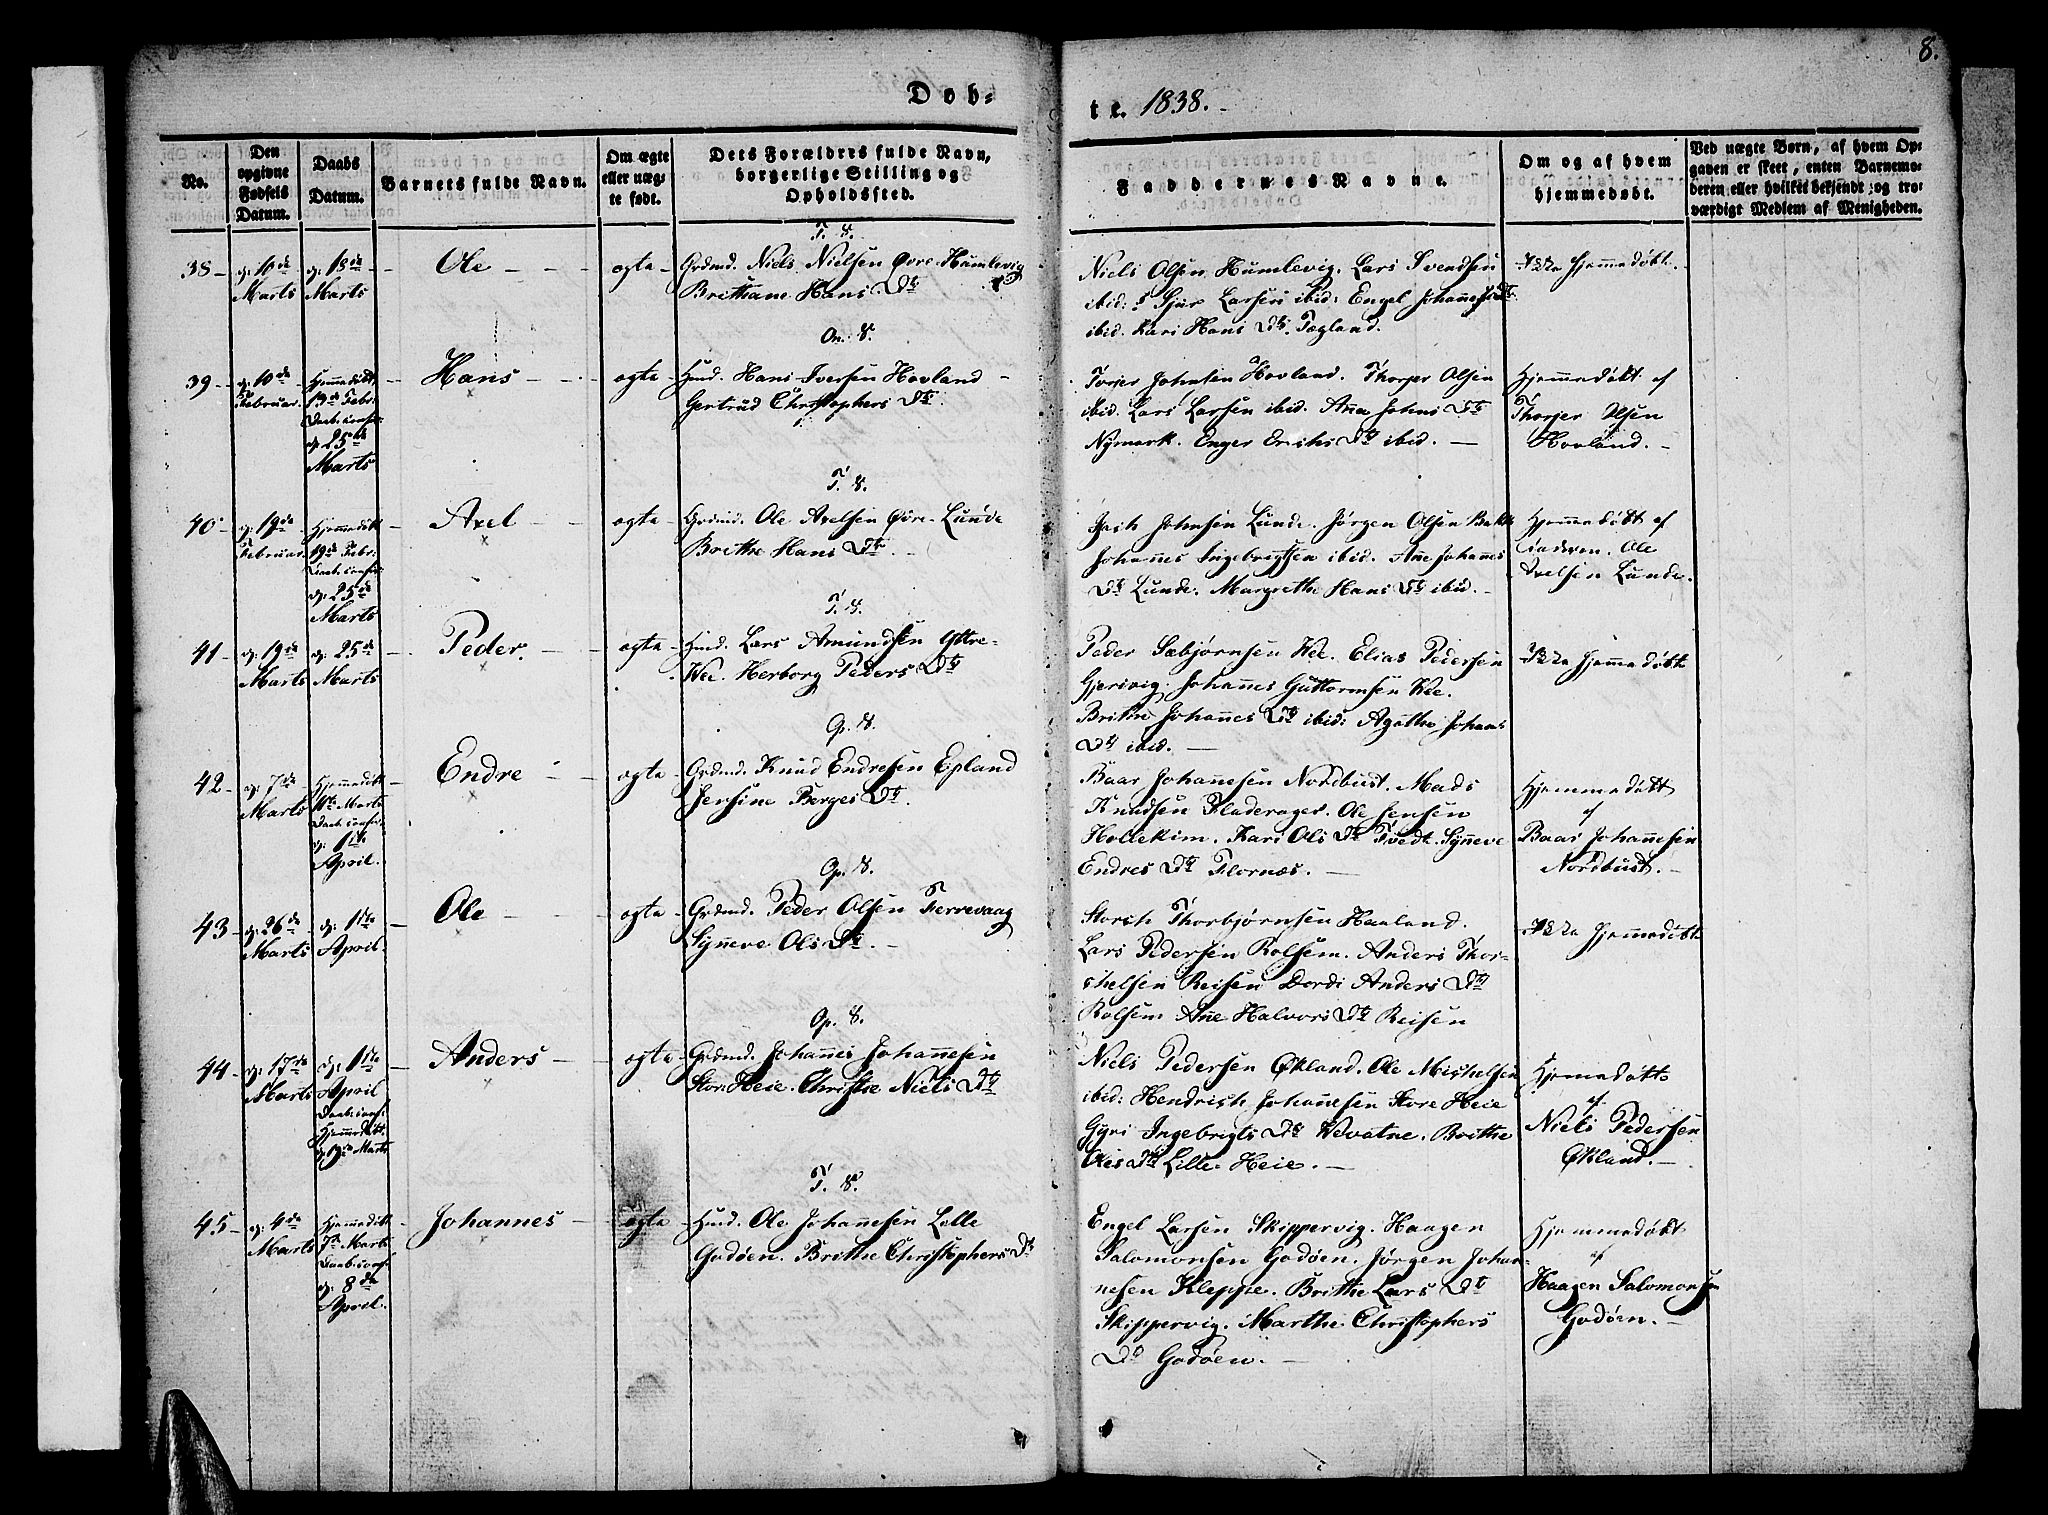 8.
Døb-
te. 1838.
No.
Den
opgivne
Fødsels
Datum.
Daabs
Datum.
Barnets fulde Navn.
Om ægte
eller uæg-
te født.
Dets Forældres fulde Navn,
borgerlige Stilling og
Opholdssted.
Faddernes Navne.
Om og af hvem
hjemmedøbt.
Ved uægte Børn, af hvem Op-
gaven er skeet, enten Barnemo-
deren eller hvilket bekjendt og tro-
værdigt Medlem af Menigheden.
T. S.
38
d: 10de
Marts
d: 18de
Marts
Ole
ægte
Grdmd. Niels Nielsen Øvre Humlevig
Brithane Hans Dtr
Niels Olsen Humlevig. Lars Svendsen
ibid: Sjur Larsen ibid: Engel Johannesdtr
ibid. Kari Hans Dtr. Tægland.
Ikke hjemmedøbt.
On. S.
39
d: 10de
Februar.
Hjemmedøbt
Febr:
Daab: conf:
d: 25de
Marts
Hans
ægte
Hmd. Hans Iversen Hovland
Gertrud Christophers Dtr.
Torjer Johnsen Hovland. Thorjer Olsen
ibid. Lars Larsen ibid. Aña Johns Dtr
Nymark. Enger Erichs Dtr ibid.
Hjemmedøbt af
Thorjer Olsen
Hovland.
T. S.
40
d: 19de
Februar.
Hjemmedøbt
19de Febr:
Daab: conf:
d: 25de
Marts
Axel
ægte
Grdmd. Ole Axelsen Øvre-Lunde
Brithe Hans Dtr.
Johnsen Lunde. Jørgen Olsen Bakk
Johannes Ingebrigtsen ibid. Añe Johannes
Dtr Lunde. Margrethe Hans Dtr ibid.
Hjemmedøbt af
Faderen. Ole
Axelsen Lunde.
T. S.
41
d: 19de
Marts
d: 25de
Marts
Peder.
ægte
Hmd. Lars Amundsen Yttre-
Wee. Herborg Peders Dtr
Peder Sæbjørnsen Wee. Elias Pedersen
Gjerevig. Johannes Guttormsen Wee.
Brithe Johannes Dtr ibid: Agathe Johans
Dtr ibid.
Ikke hjemmedøbt
Op. S.
42
d: 7de
Marts
Hjemmedøbt
Marts
Daab: conf:
d: 1ste
April.
Endre
ægte
Grdmd. Knud Endresen Epland
Jersine Berges Dtr.
Baar Johannesen Nordbust. Mads
Knudsen Fladerager. Ole Jensen
Hollekim. Kari Ols Dtr Tvedt. Syñeve
Endres Dtr Flornæs.
Hjemmedøbt
af
Baar Johannesen
Nordbust.
Op. S.
43
d: 26de
Marts
d: 1ste
April.
Ole
ægte
Grdmd. Peder Olsen Ferrevaag
Syñeve Ols Dtr.
Storch Thorbjørnsen Haaland.
Lars Pedersen Rolsem. Anders Thor-
chelsen Reisen Dordi Anders Dtr
Rolsem Añe Halvors Dtr Reisen
Ikke hjemmedøbt
Op. S.
44
d: 17de
Marts
d: 1ste
April
Daab: conf:
Hjemmedøbt
d: 19de Marts
Anders
ægte
Grdmd. Johannes Johannesen
Store Heie. Christhe Niels Dtr
Niels Pedersen Økland. Ole Michelsen
ibid: Hendrich Johannesen Store Heie
Gyri Ingebrigts Dtr Wevatne. Brithe
Oles Dtr Lille Heie.
Hjemmedøbt
af
Niels Pedersen
Økland.
T. S.
45
d: 4de
Marts
Hjemmedøbt
7de Marts
Daab: conf:
d: 8de
April.
Johannes
ægte
Hmd. Ole Johannesen Lille
Godøen. Brithe Christophers Dtr
Engel Larsen Skippervig. Haagen
Salomonsen Godøen. Jørgen Johan-
nesen Kleppe. Brithe Lars Dtr
Skippervig. Marthe Christophers
Dtr Godøen.
Hjemmedøbt
af
Haagen Salomonsen
Godøen.